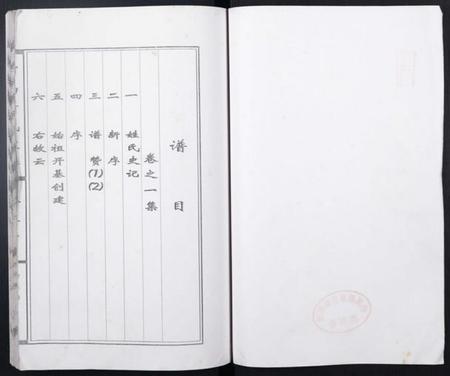 谱目
卷之一集
一 姓氏史记
二 新序
三 谱赞(1)(2)
四 序
五 始祖开基创建
六 右故云